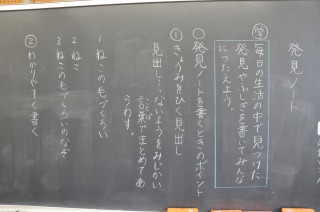 発見ノート
毎日の生活の中で見つけた
発見やふしぎを書いてみんな
につたえよう。
○発見ノートを書くときのポイント
①きょうみをひく見出し
見出し…ないようをみじかい
言葉でまとめてあ
らわす。
1 ねこの毛づくろい
2 ねこ
3 ねこの毛づくろいのなぞ
②わかりやすく書く